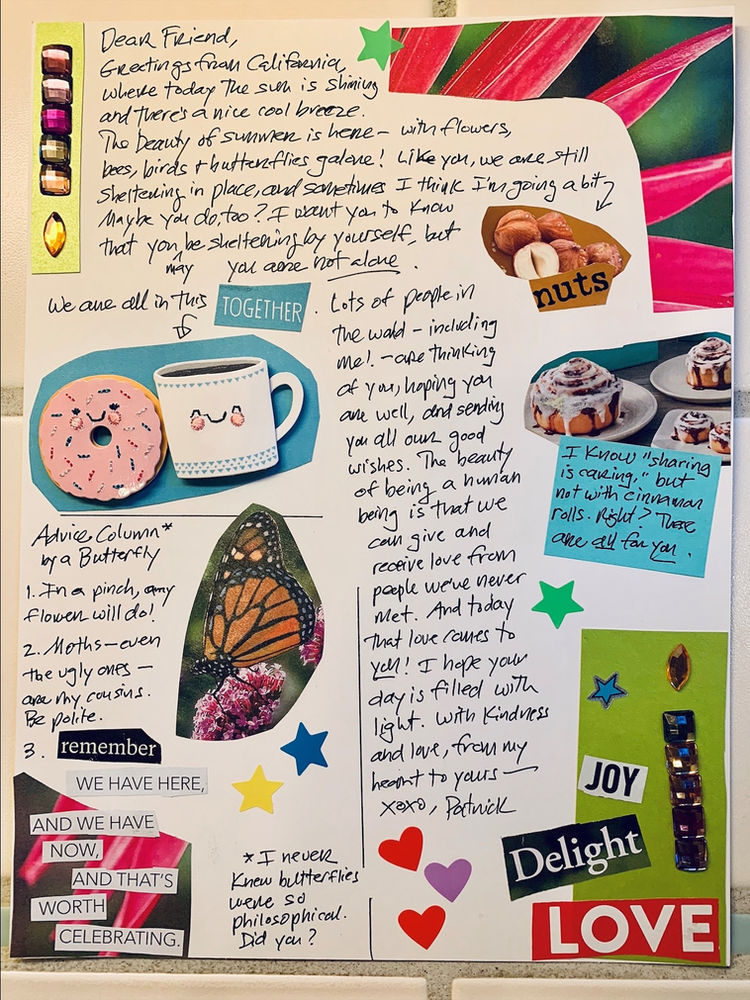 Dear Friend,
Greetings from California,
where today the sun is shining
and there's a nice cool breeze.
The beauty of summer is here – with flowers,
bees, birds + butterflies galore! Like you, we are still
sheltering in place, and sometimes I think I'm going a bit
nuts
Maybe you do, too? I want you to know
that you may be sheltering by yourself, but
you are not alone.
We are all in this TOGETHER.
Lots of people in
the world – including
me! – are thinking
of you, hoping you
are well, and sending
you all our good
wishes. The beauty
of being a human
being is that we
can give and
receive love from
people we've never
met. And today
that love comes to
you! I hope your
day is filled with
light. With kindness
and love, from my
heart to yours —
xoxo, Patrick
I know "sharing
is caring," but
not with cinnamon
rolls. Right? These
are all for you.
Advice Column*
by a Butterfly
1. In a pinch, any
flower will do!
2. Moths – even
the ugly ones –
are my cousins.
Be polite.
3. remember
WE HAVE HERE,
AND WE HAVE
NOW,
AND THAT'S
WORTH
CELEBRATING.
*I never
knew butterflies
were so
philosophical.
Did you?
JOY
Delight
LOVE